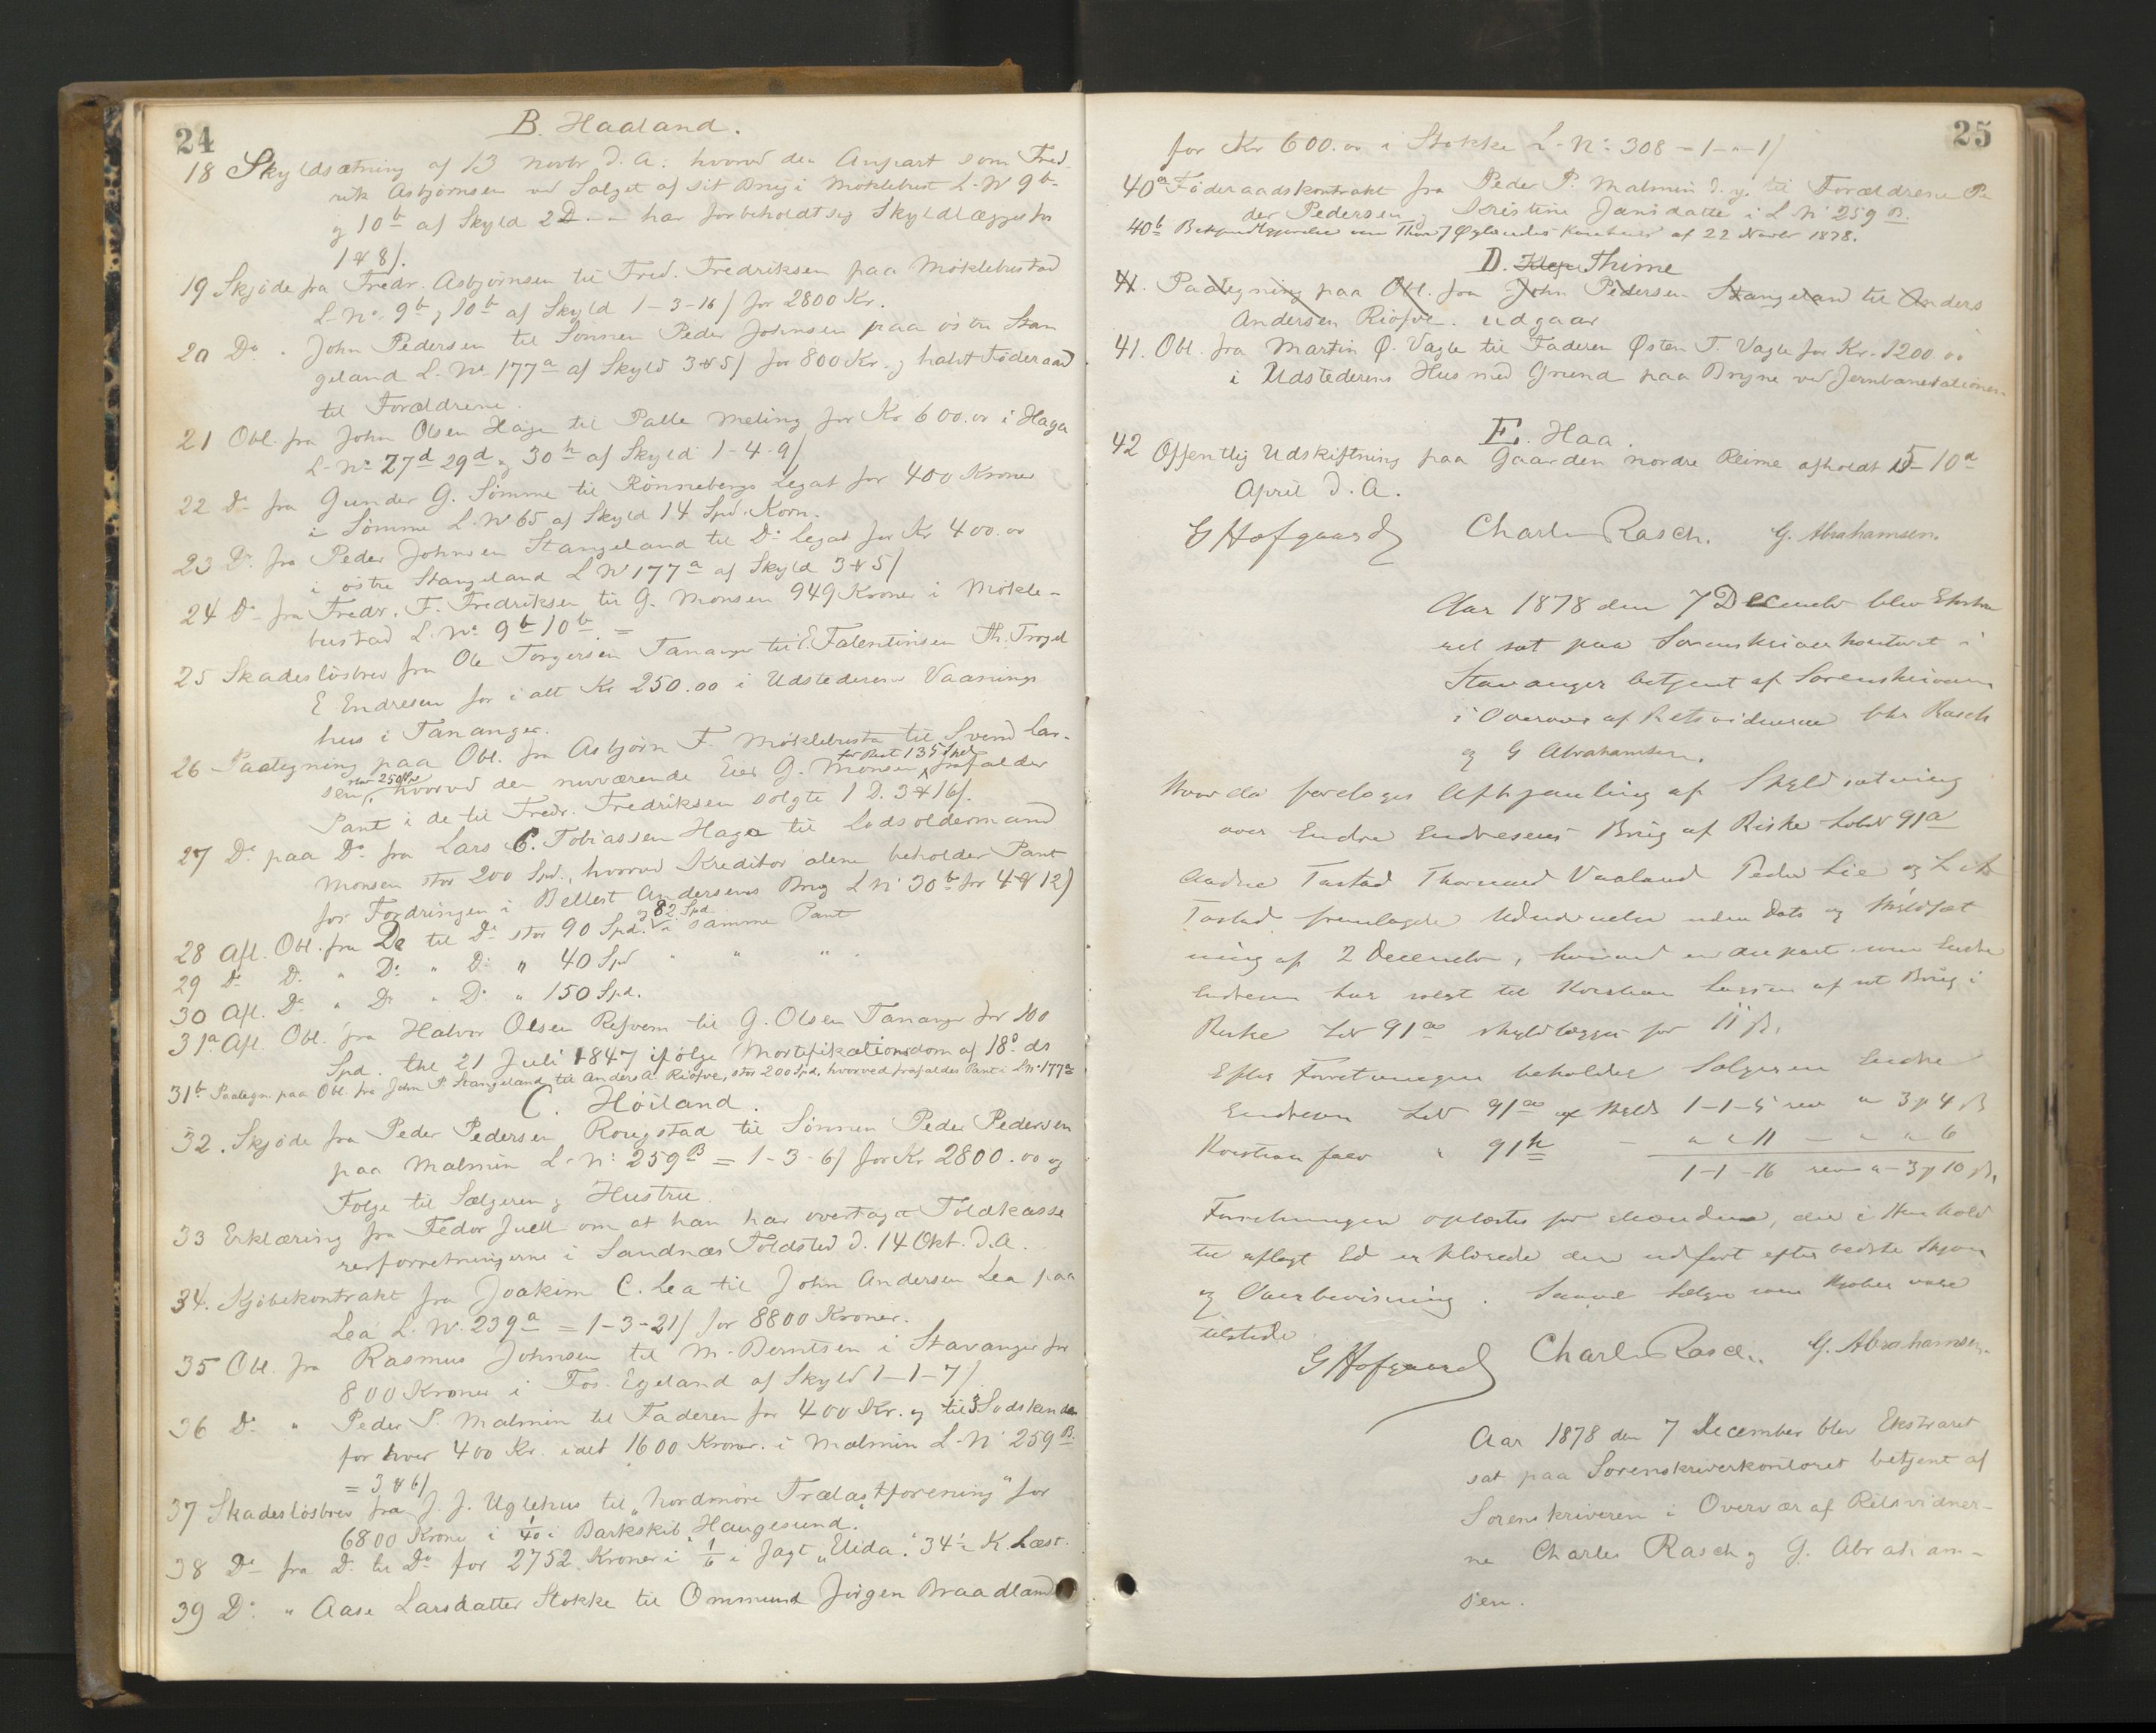 24
B. Haaland.
18 Skyldsætning af 13 Novbr d. A. hvorved den Anpart som Fred-
rik Asbjørnsen ved Salget af sit Brug i Møklebust L-N 9b-
og 10b af Skyld 2D - - har forbeholdt sig Skyldlægges for
1 # 8/.
19 Skjøde fra Fredr. Asbjørnsen til Fred. Fredriksen paa Møklebustad
L-No. 9b og 10b af Skyld 1-3-16/ for 2800 Kr.
20 Do. " John Pedersen til Sønnen Peder Johnsen paa østre Stan
geland L-No 177a af Skyld 3 # 5/ for 800 Kr. og halvt Føderaad
til Forældrene.
21 Obl. fra John Olsen Haga til Palle Meling for Kr 600.00 i Haga
L-No 27d 29d og 30h af Skyld 1-4-9/
22 Do fra Gunder G. Sømme til Rønnebergs Legat for 400 Kroner
i Sømme L-No 65 af Skyld 14 Spd. Korn.
23 Do fra Peder Johnsen Stangeland til Do Legat for Kr 400.00
i østre Stangeland L No 177a af Skyld 3 # 5/
24 Do fra Fredr. F. Fredriksen til G. Monsen 949 Kroner i Møkle-
bustad L. No 9b 10b =
25 Skadesløsbrev fra Ole Torgersen Tananger til E. Falentinsen Th.
E Endresen for i alt Kr 250.00 i Udstederens Vaanings
hus i Tananger.
26 Paategning paa Obl. fra Asbjørn F. Møklebusta til Svend Lar-
for Rest 135 Spd
sen, hvorved den nuværende Eier G. Monsen frafalder
Pant i de til Fredr. Fredriksen solgte 1 D. 3 # 16/.
27 Do paa Do fra Lars C. Tobiassen Haga til Lodsoldermand
Monsen stor 200 Spd., hvorved Kreditor alene beholder Pant
for Fordringen i Bellest Andersens Brug L N 30b for 4 # 12/
og 82 Spd
28 Afl. Obl. fra Do til Do stor 90 Spd. i samme Pant
29 Do Do " Do " Do " 40 Spd " " " .
30 Afl. Do " Do " Do " 150 Spd.
31a Afl. Obl. fra Halvor Olsen Refvem til G. Olsen Tananger for 100
Spd. thl 21 Juli 1847 ifølge Mortifikationsdom af 18o ds
31b Paategn. paa Obl. fra John P. Stangeland til Anders A. Riofve, stor 200 Spd. hvorved frafaldes Pant i LN 177a
C. Høiland.
32. Skjøde fra Peder Pedersen Rougstad til Sønnen Peder Pedersen
paa Malmin L-No 259B = 1-3-6/ for Kr 2800.00 og
Følge til Sælgeren og Hustru.
33 Erklæring fra Fedor Juell om at han har overtaget Toldkasse
rerforretningerne i Sandnæs Toldsted d. 14 Okt. d.A.
34. Kjøbekontrakt fra Joakim C. Lea til John Andersen Lea paa
Lea L. No. 239a = 1-3-21/ for 8800 Kroner.
35 Obl. fra Rasmus Johnsen til M. Berntsen i Stavanger for
800 Kroner i Fos-Egeland af Skyld 1-1-7/
36 Do " Peder P. Malmin til Faderen for 400 Kr. og til 3 Sødskende
for hver 400 Kr. ialt 1600 Kroner. i Malmin L-N 259B.
= 3 # 6/
37 Skadesløsbrev fra J. J. Uglehus til "Nordmøre Trælastforening" for
6800 Kroner i 1/40 i Barkskib Haugesund.
38 Do fra Do til Do for 2752 Kroner i 1/6 i Jagt "Elida". 34 1/2 K. Læst.
39 Do. " Aase Larsdatter Stokke til Ommund Jørgen Braadland
25
for Kr 600.00 i Stokke L-No: 308 = 1-"-1/
40a Føderaadskontrakt fra Peder P. Malmin d.y. til Forældrene Pe
der Pedersen og Kristine Jansdatte i L N 259B.
40b Bekjendtgjørelse om Thor J Øglændes af 22 Novbr 1878.
D. Klep Thime
41. Paategning paa Obl. fra John Pedersen Stangeland til Anders
Andersen Riofve. udgaar
41. Obl. fra Martin Ø. Vagle til Faderen Østen T. Vagle for Kr. 1200.00
i Udstederens Hus med Grund paa Bryne ved Jernbanestationen
E. Haa.
42 Offentlig Udskiftning paa Gaarden nordre Reime afholdt 10de
April d. A.
G Hofgaard Charles Rasch. G. Abrahamsen.
Aar 1878 den 7 December blev Ekstra
ret sat paa Sorenskriverkontoret i
Stavanger betjent af Sorenskriveren
i Overvær af Retsvidnerne Chr Rasch
og G Abrahamsen.
Hvor da foretoges Afhjemling af Skyldsætning
over Endre Endresens Brug af Riske LobN 91a
Aadne Tastad Thormod Vaaland Peder Lie og
Tastad fremlagde uden Dato og Skyldsæt
ning af 2 December, hvorved en anpart som Endre
Endresen har solgt til Kristian Larsen af sit Brug i
Riske LN 91a skyldlægges for 11 ß.
Efter Forretningen beholder Sælgeren Endre
Endresen LN 91a af Skyld 1-1-5 rev " 3 # 4 ß
Kristian faar " 91h — " " 11 — " " 6
1-1-16 rev " 3 # 10 ß.
Forretningen oplæstes for Mændene, der i Henhold
til aflagt Ed erklærede den udført efter bedste Skjøn
og Overbevisning. Saavel Sælger som Kjøber vare
tilstede
G Hofgaard Charles Rasch. G. Abrahamsen.
Aar 1878 den 7 December blev Ekstraret
sat paa Sorenskriverkontoret betjent af
Sorenskriveren i Overvær af Retsvidner-
ne Charles Rasch og G. Abraham-
sen.